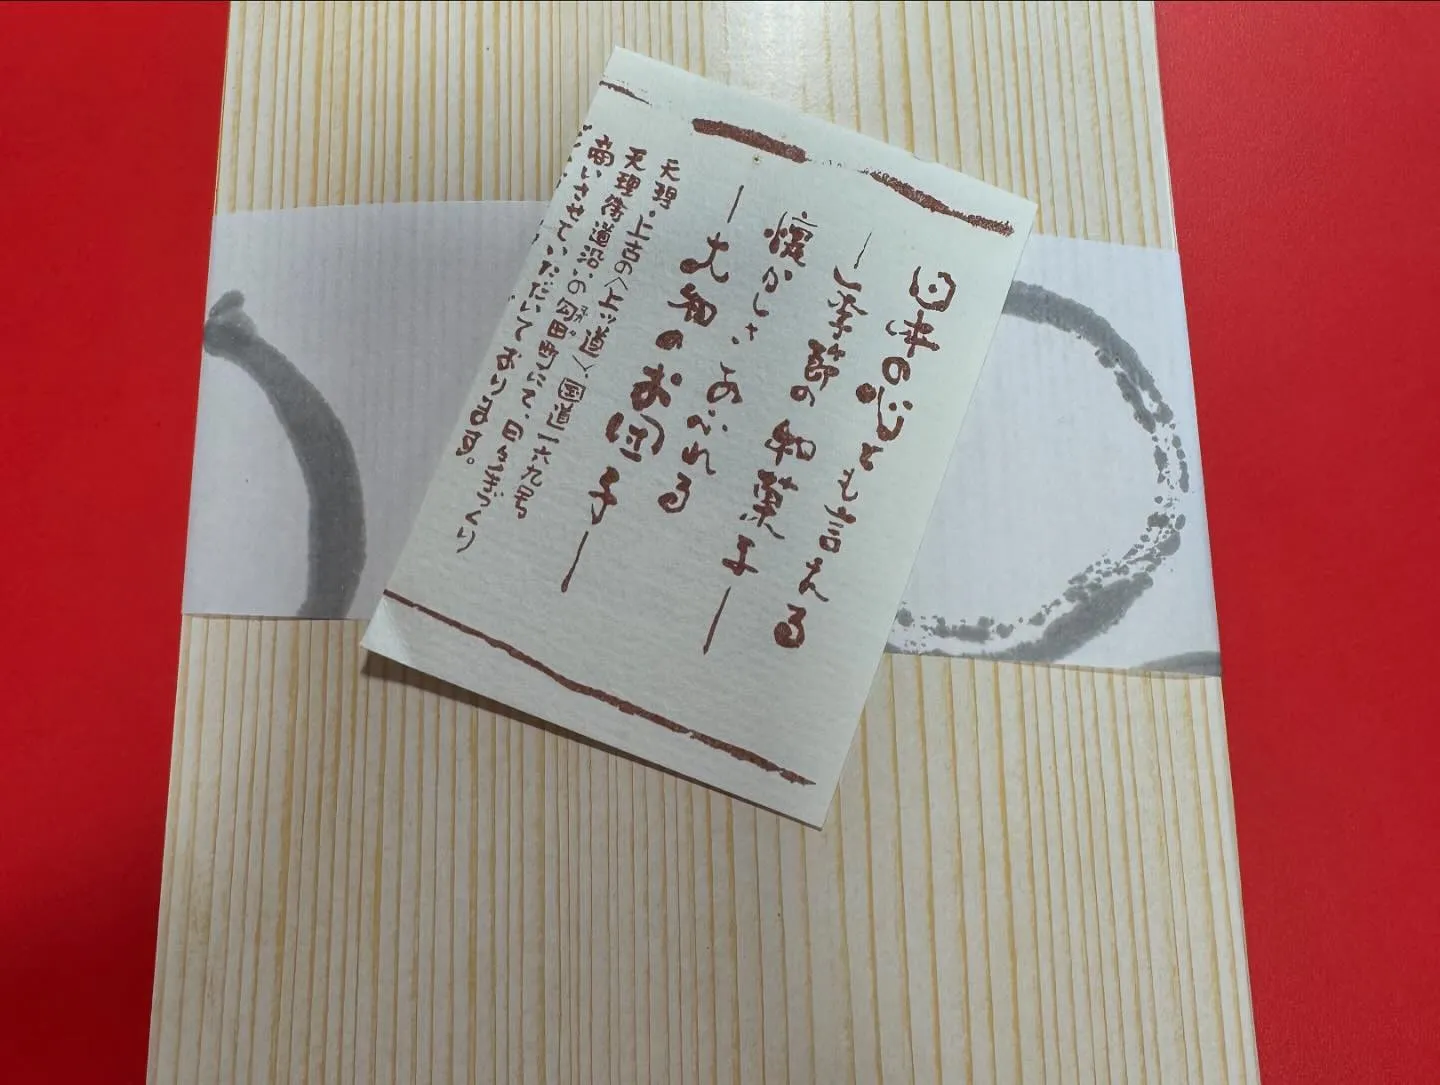 日本の心とも言える
―季節の和菓子―
懐かしさ、あふれる
―大和のお団子―
天理・上古の〈上ッ道〉、国道一六九号
天理街道沿の勾田町にて、日々ぎっくり
商いさせていただいております。